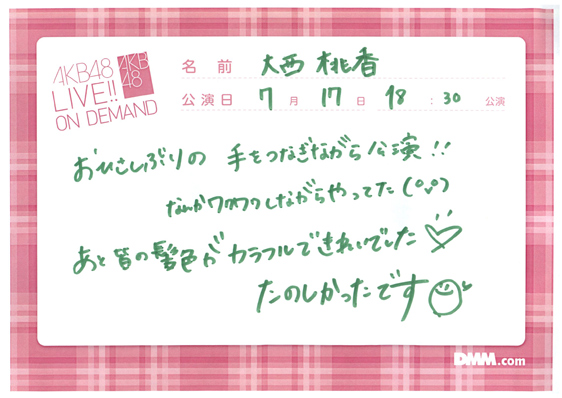 AKB48
LIVE!!
ON DEMAND
AKB
48
名前 大西桃香
公演日 7月17日 18:30 公演
おひさしぶりの 手をつなぎながら公演!!
なんかワクワクしながらやってた(°ᴗ°)
あと皆の髪色がカラフルできれいでした♡
たのしかったです
DMM.com